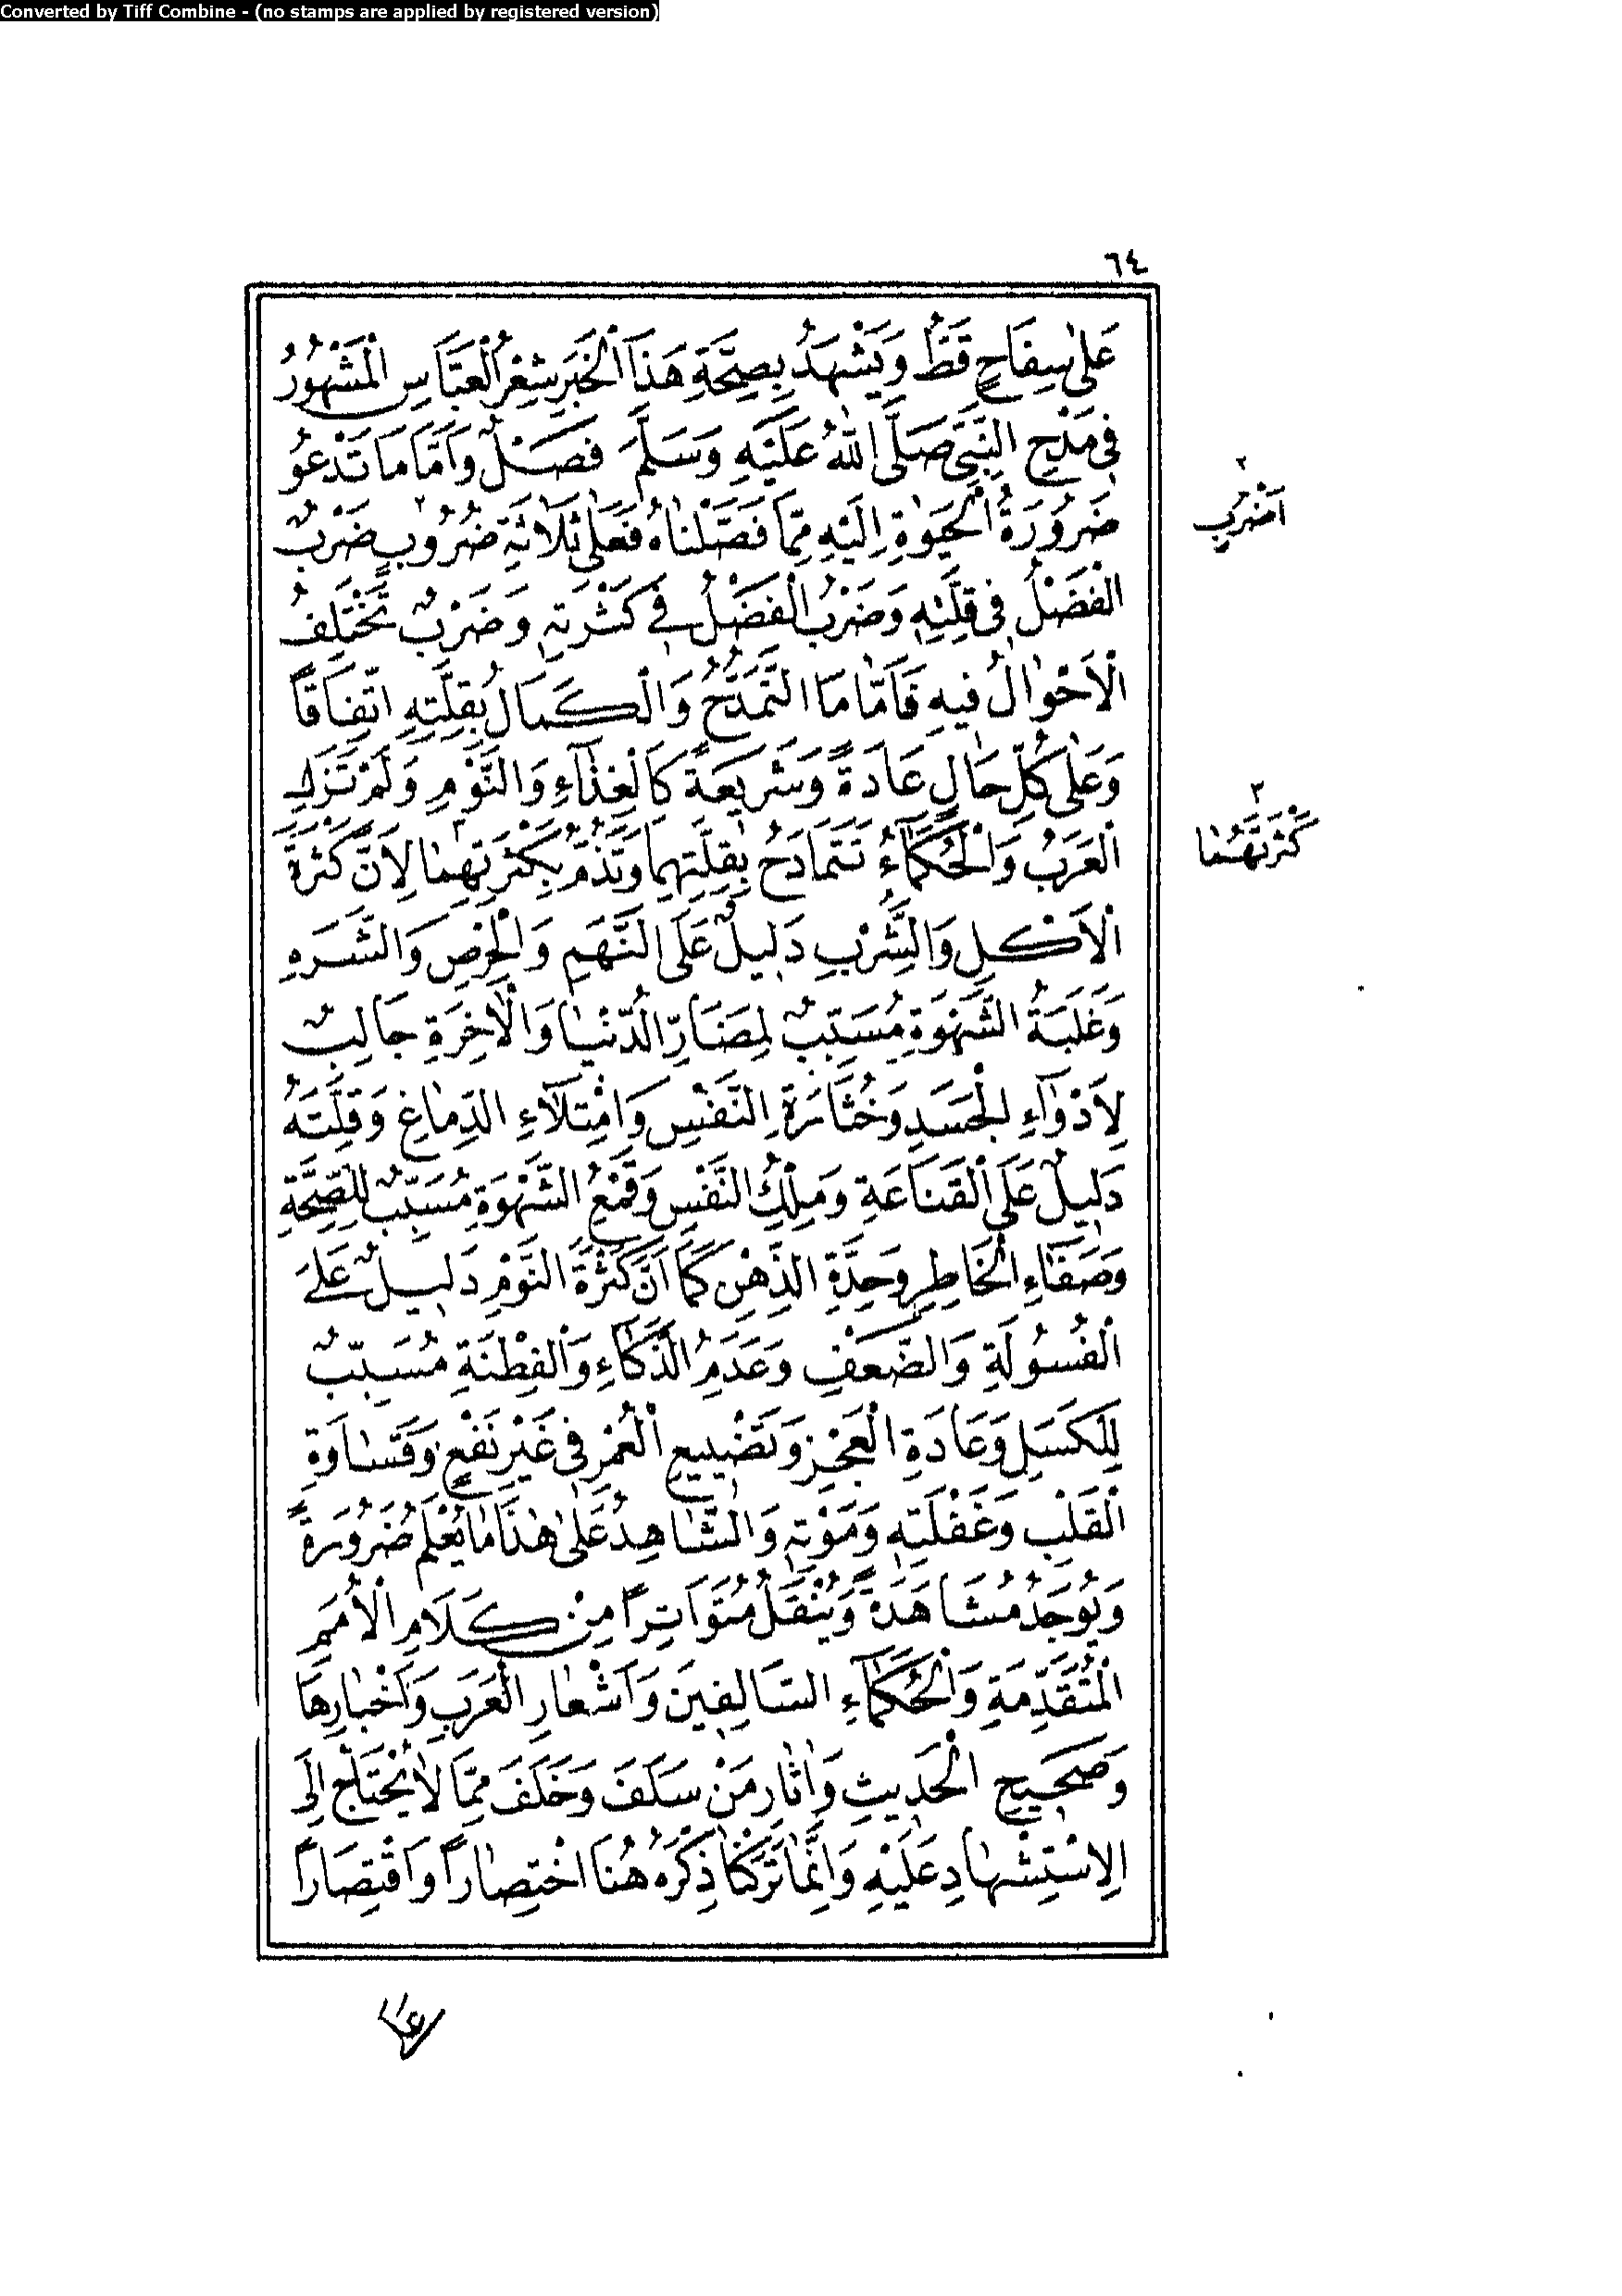 Converted by Tiff Combine - (no stamps are applied by registered version)
٦٤
عَلٰى سِفَاحٍ قَطُّ وَيَشْهَدُ بِصِحَّةِ هَذَا الْخَبَرِ شِعْرُ الْعَبَّاسِ الْمَشْهُورُ
فِى مَدْحِ النَّبِىِّ صَلَّى اللّٰهُ عَلَيْهِ وَسَلَّمَ فَصْلٌ وَاَمَّا مَا تَدْعُو
ضَرُورَةُ الْحَيٰوةِ اِلَيْهِ مِمَّا فَصَّلْنَاهُ فَعَلٰى ثَلَاثَةِ ضُرُوبٍ٢ ضَرْبٌ
الْفَضْلُ فِى قِلَّتِهِ وَضَرْبٌ الْفَضْلُ فِى كَثْرَتِهِ وَضَرْبٌ تَخْتَلِفُ
الْاَحْوَالُ فِيهِ فَاَمَّا مَا التَّمَدُّحُ وَالْكَمَالُ بِقِلَّتِهِ اتِّفَاقًا
وَعَلٰى كُلِّ حَالٍ عَادَةً وَشَرِيعَةً كَالْغِذَاءِ وَالنَّوْمِ وَلَمْ تَزَلِ
الْعَرَبُ وَالْحُكَمَاءُ تَتَمَادَحُ بِقِلَّتِهِمَا وَتَذُمُّ بِكَثْرَتِهِمَا٣ لِاَنَّ كَثْرَةَ
الْاَكْلِ وَالشُّرْبِ دَلِيلٌ عَلَى النَّهَمِ وَالْحِرْصِ وَالشَّرَهِ
وَغَلَبَةُ الشَّهْوَةِ مُسَبِّبٌ لِمَضَارِّ الدُّنْيَا وَالْاٰخِرَةِ جَالِبٌ
لِاَدْوَاءِ الْجَسَدِ وَخُثَارَةِ النَّفْسِ وَامْتِلَاءِ الدِّمَاغِ وَقِلَّتَهُ
دَلِيلٌ عَلَى الْقَنَاعَةِ وَمِلْكِ النَّفْسِ وَقَمْعُ الشَّهْوَةِ مُسَبِّبٌ لِلصِّحَّةِ
وَصَفَاءِ الْخَاطِرِ وَحِدَّةِ الذِّهْنِ كَمَا اَنَّ كَثْرَةَ النَّوْمِ دَلِيلٌ عَلَى
الْفُسُولَةِ وَالضَّعْفِ وَعَدَمِ الذَّكَاءِ وَالْفِطْنَةِ مُسَبِّبٌ
لِلْكَسَلِ وَعَادَةِ الْعَجْزِ وَتَضْيِيعِ الْعُمْرِ فِى غَيْرِ نَفْعٍ وَقَسَاوَةِ
الْقَلْبِ وَغَفْلَتِهِ وَمَوْتِهِ وَالشَّاهِدُ عَلٰى هٰذَا مَا يُعْلَمُ ضَرُورَةً
وَيُوجَدُ مُشَاهَدَةً وَيُنْقَلُ مُتَوَاتِرًا مِنْ كَلَامِ الْاُمَمِ
الْمُتَقَدِّمَةِ وَالْحُكَمَاءِ السَّالِفِينَ وَاَشْعَارِ الْعَرَبِ وَاَخْبَارِهَا
وَصَحِيحِ الْحَدِيثِ وَاٰثَارِ مَنْ سَلَفَ وَخَلَفَ مِمَّا لَا يُحْتَاجُ اِلَى
الِاسْتِشْهَادِ عَلَيْهِ وَاِنَّمَا تَرَكْنَا ذِكْرَهُ هُنَا اخْتِصَارًا وَاقْتِصَارًا
٢
اَضْرُبٍ
٣
كَثْرَتَهُمَا